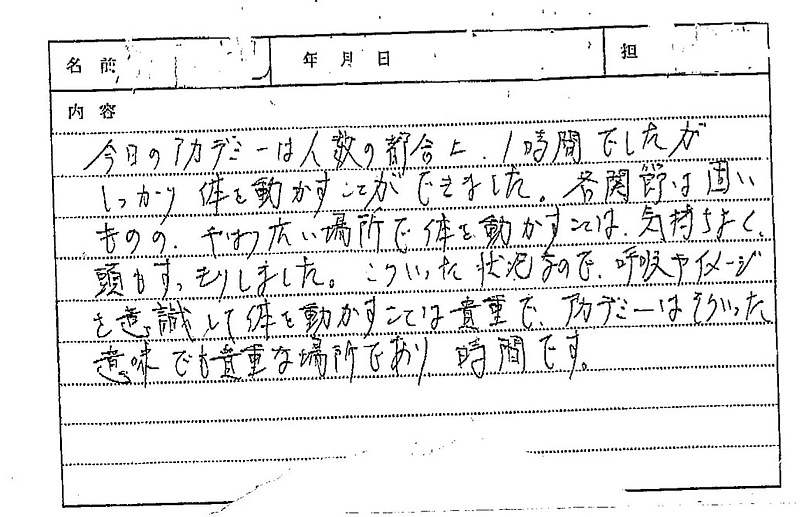 名前 年月日 担
内容
今日のアカデミーは人数の都合上、1時間でしたが
しっかり体を動かすことができました。各関節は固い
ものの、やはり広い場所で体を動かすことは、気持ちよく、
頭もすっきりしました。こういった状況なので、呼吸やイメージ
を意識して体を動かすことは貴重で、アカデミーはそういった
意味でも貴重な場所であり時間です。